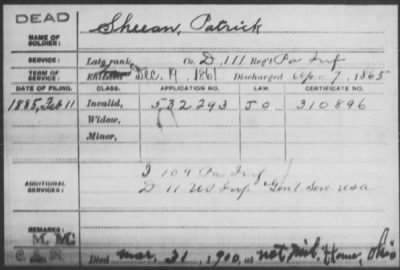 DEAD
NAME OF SOLDIER: Sheean, Patrick
SERVICE: Late rank, Co. D, 111 Reg't Pa Inf
TERM OF SERVICE: Dec. 19, 1861 Discharged Apr. 7, 1865
DATE OF FILING. CLASS. APPLICATION NO. LAW. CERTIFICATE NO.
1885, Feb 11 Invalid, 532293 J O 310896
Widow,
Minor,
ADDITIONAL SERVICES: I 109 Pa Inf
D 11 US Inf Gen'l Serv. USA
REMARKS:
Died Mar. 31, 1900, at Nat. Mil. Home, Ohio